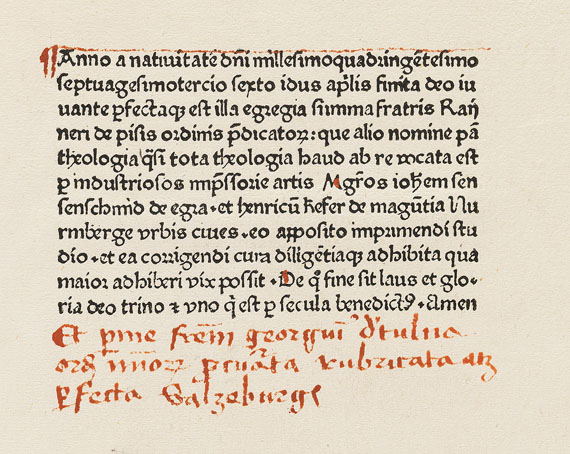 ¶ Anno a natiuitate dñi millesimoquadringẽtesimo
septuagesimotercio sexto idus apͥlis finita deo iu
uante ꝑfectaqꝫ est illa egregia summa fratris Raÿ
neri de pisis ordinis p̃dicatoꝝ: que alio nomine pã
theologia qͣsi tota theologia haud ab re vocata est
ꝑ industriosos imp̃ssorie artis Mgr̃os ioh̃em sen
senschmid de egra · et henricũ kefer de magũtia Nu
rmberge vrbis ciues · eo apposito imprimendi stu
dio · et ea corrigendi cura diligẽtiaqꝫ adhibita qua
maior adhiberi vix possit · De qͦ fine sit laus et glo-
ria deo trino ⁊ vno qͥ est ꝑ secula benedictꝰ · Amen
Et frẽm georgiũ
rubricata atqꝫ
ꝑfecta Salzeburge